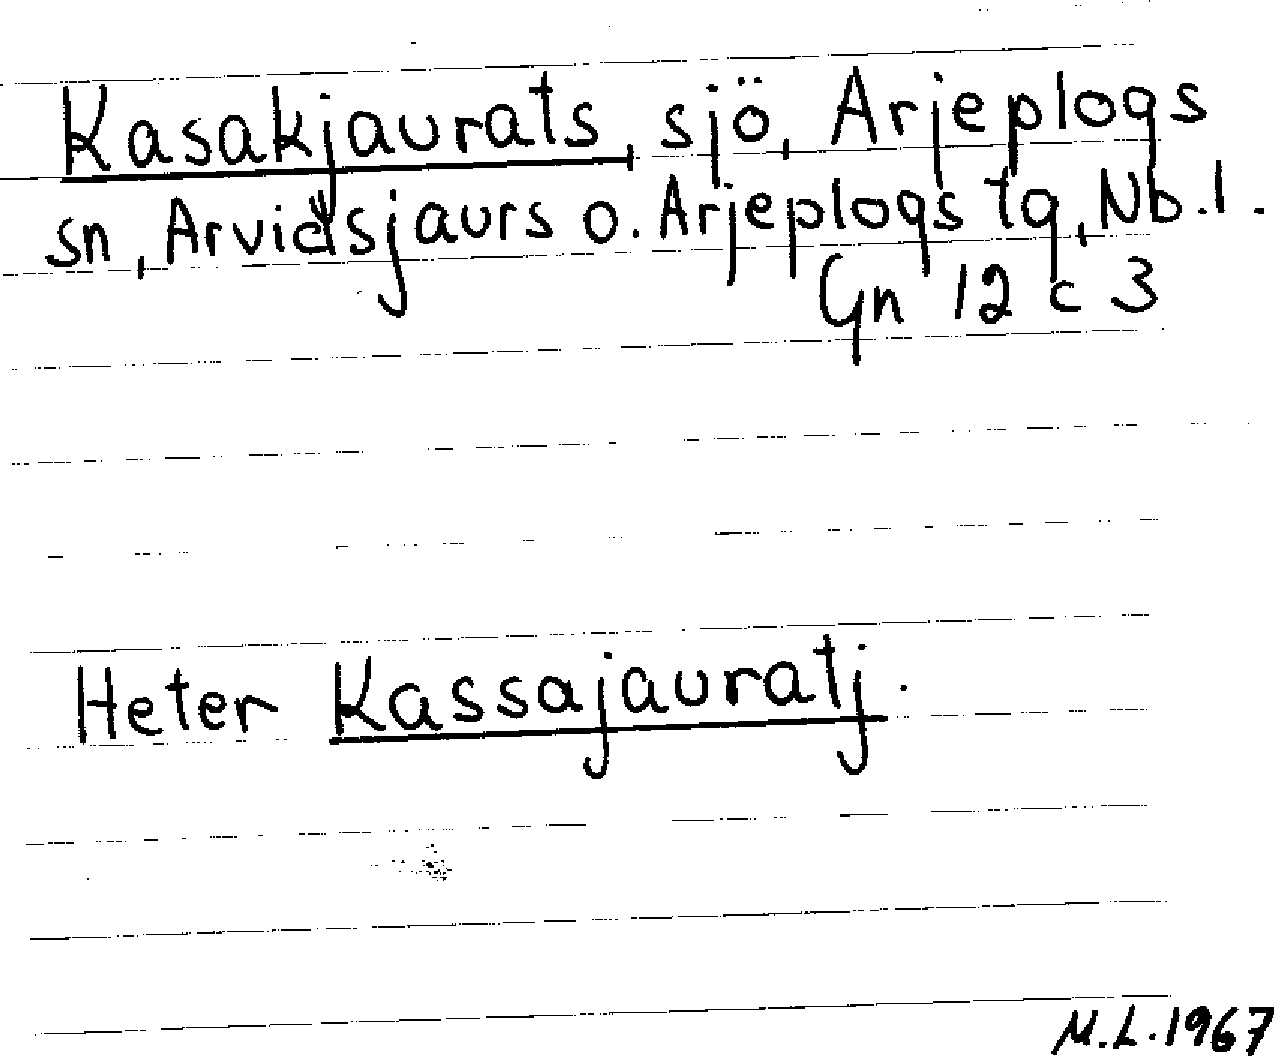 Kasakjaurats, sjö, Arjeplogs
sn, Arvidsjaurs o. Arjeplogs tg, Nb. l.
Gn 12 c 3
Heter Kassajauratj.
M.L. 1967